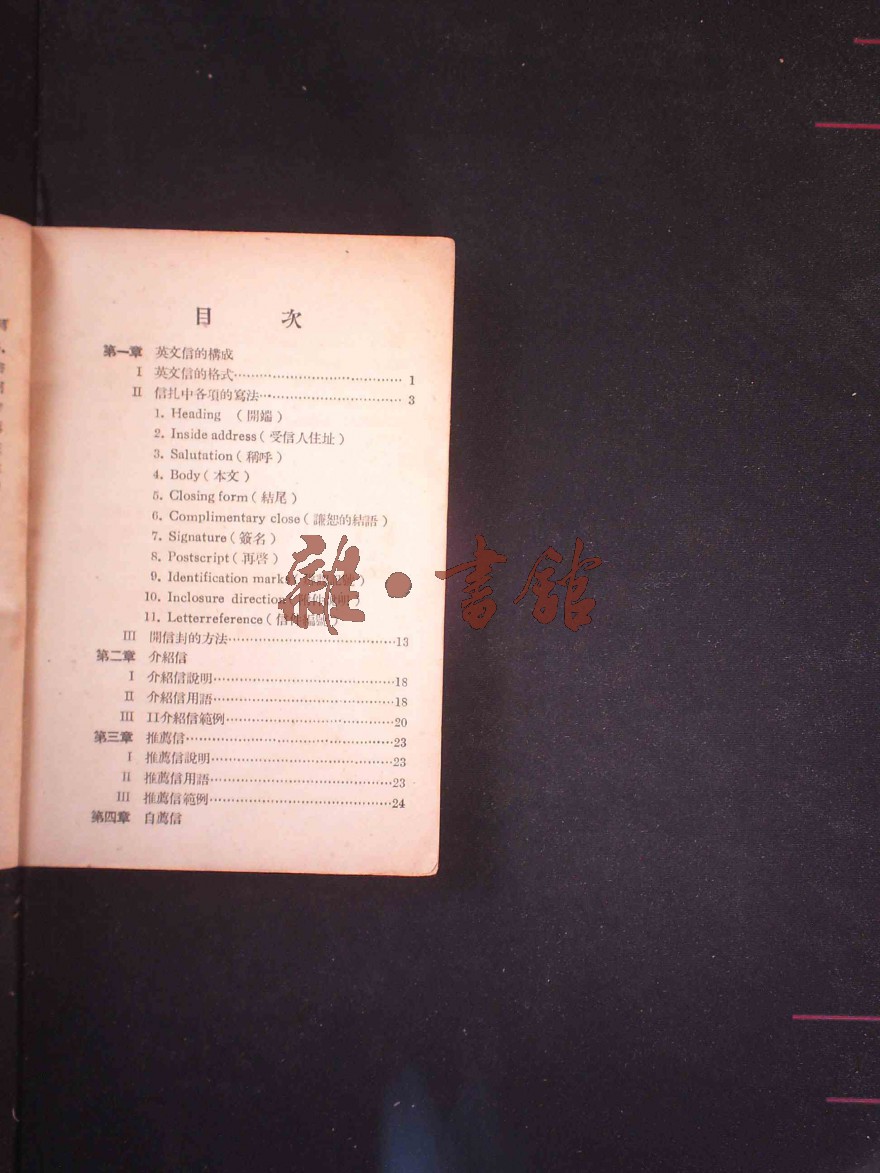 目 次
第一章 英文信的構成
I 英文信的格式………………………………1
II 信扎中各項的寫法………………………3
1. Heading (開端)
2. Inside address(受信人住址)
3. Salutation(稱呼)
4. Body(本文)
5. Closing form(結尾)
6. Complimentary close(謙恕的結語)
7. Signature(簽名)
8. Postscript(再啓)
9. Identification marks
10. Inclosure direction
11. Letterreference(信件
III 開信封的方法……………………………13
第二章 介紹信
I 介紹信說明………………………………18
II 介紹信用語………………………………18
III II介紹信範例……………………………20
第三章 推薦信…………………………………23
I 推薦信說明………………………………23
II 推薦信用語………………………………23
III 推薦信範例………………………………24
第四章 自薦信
雜·書館